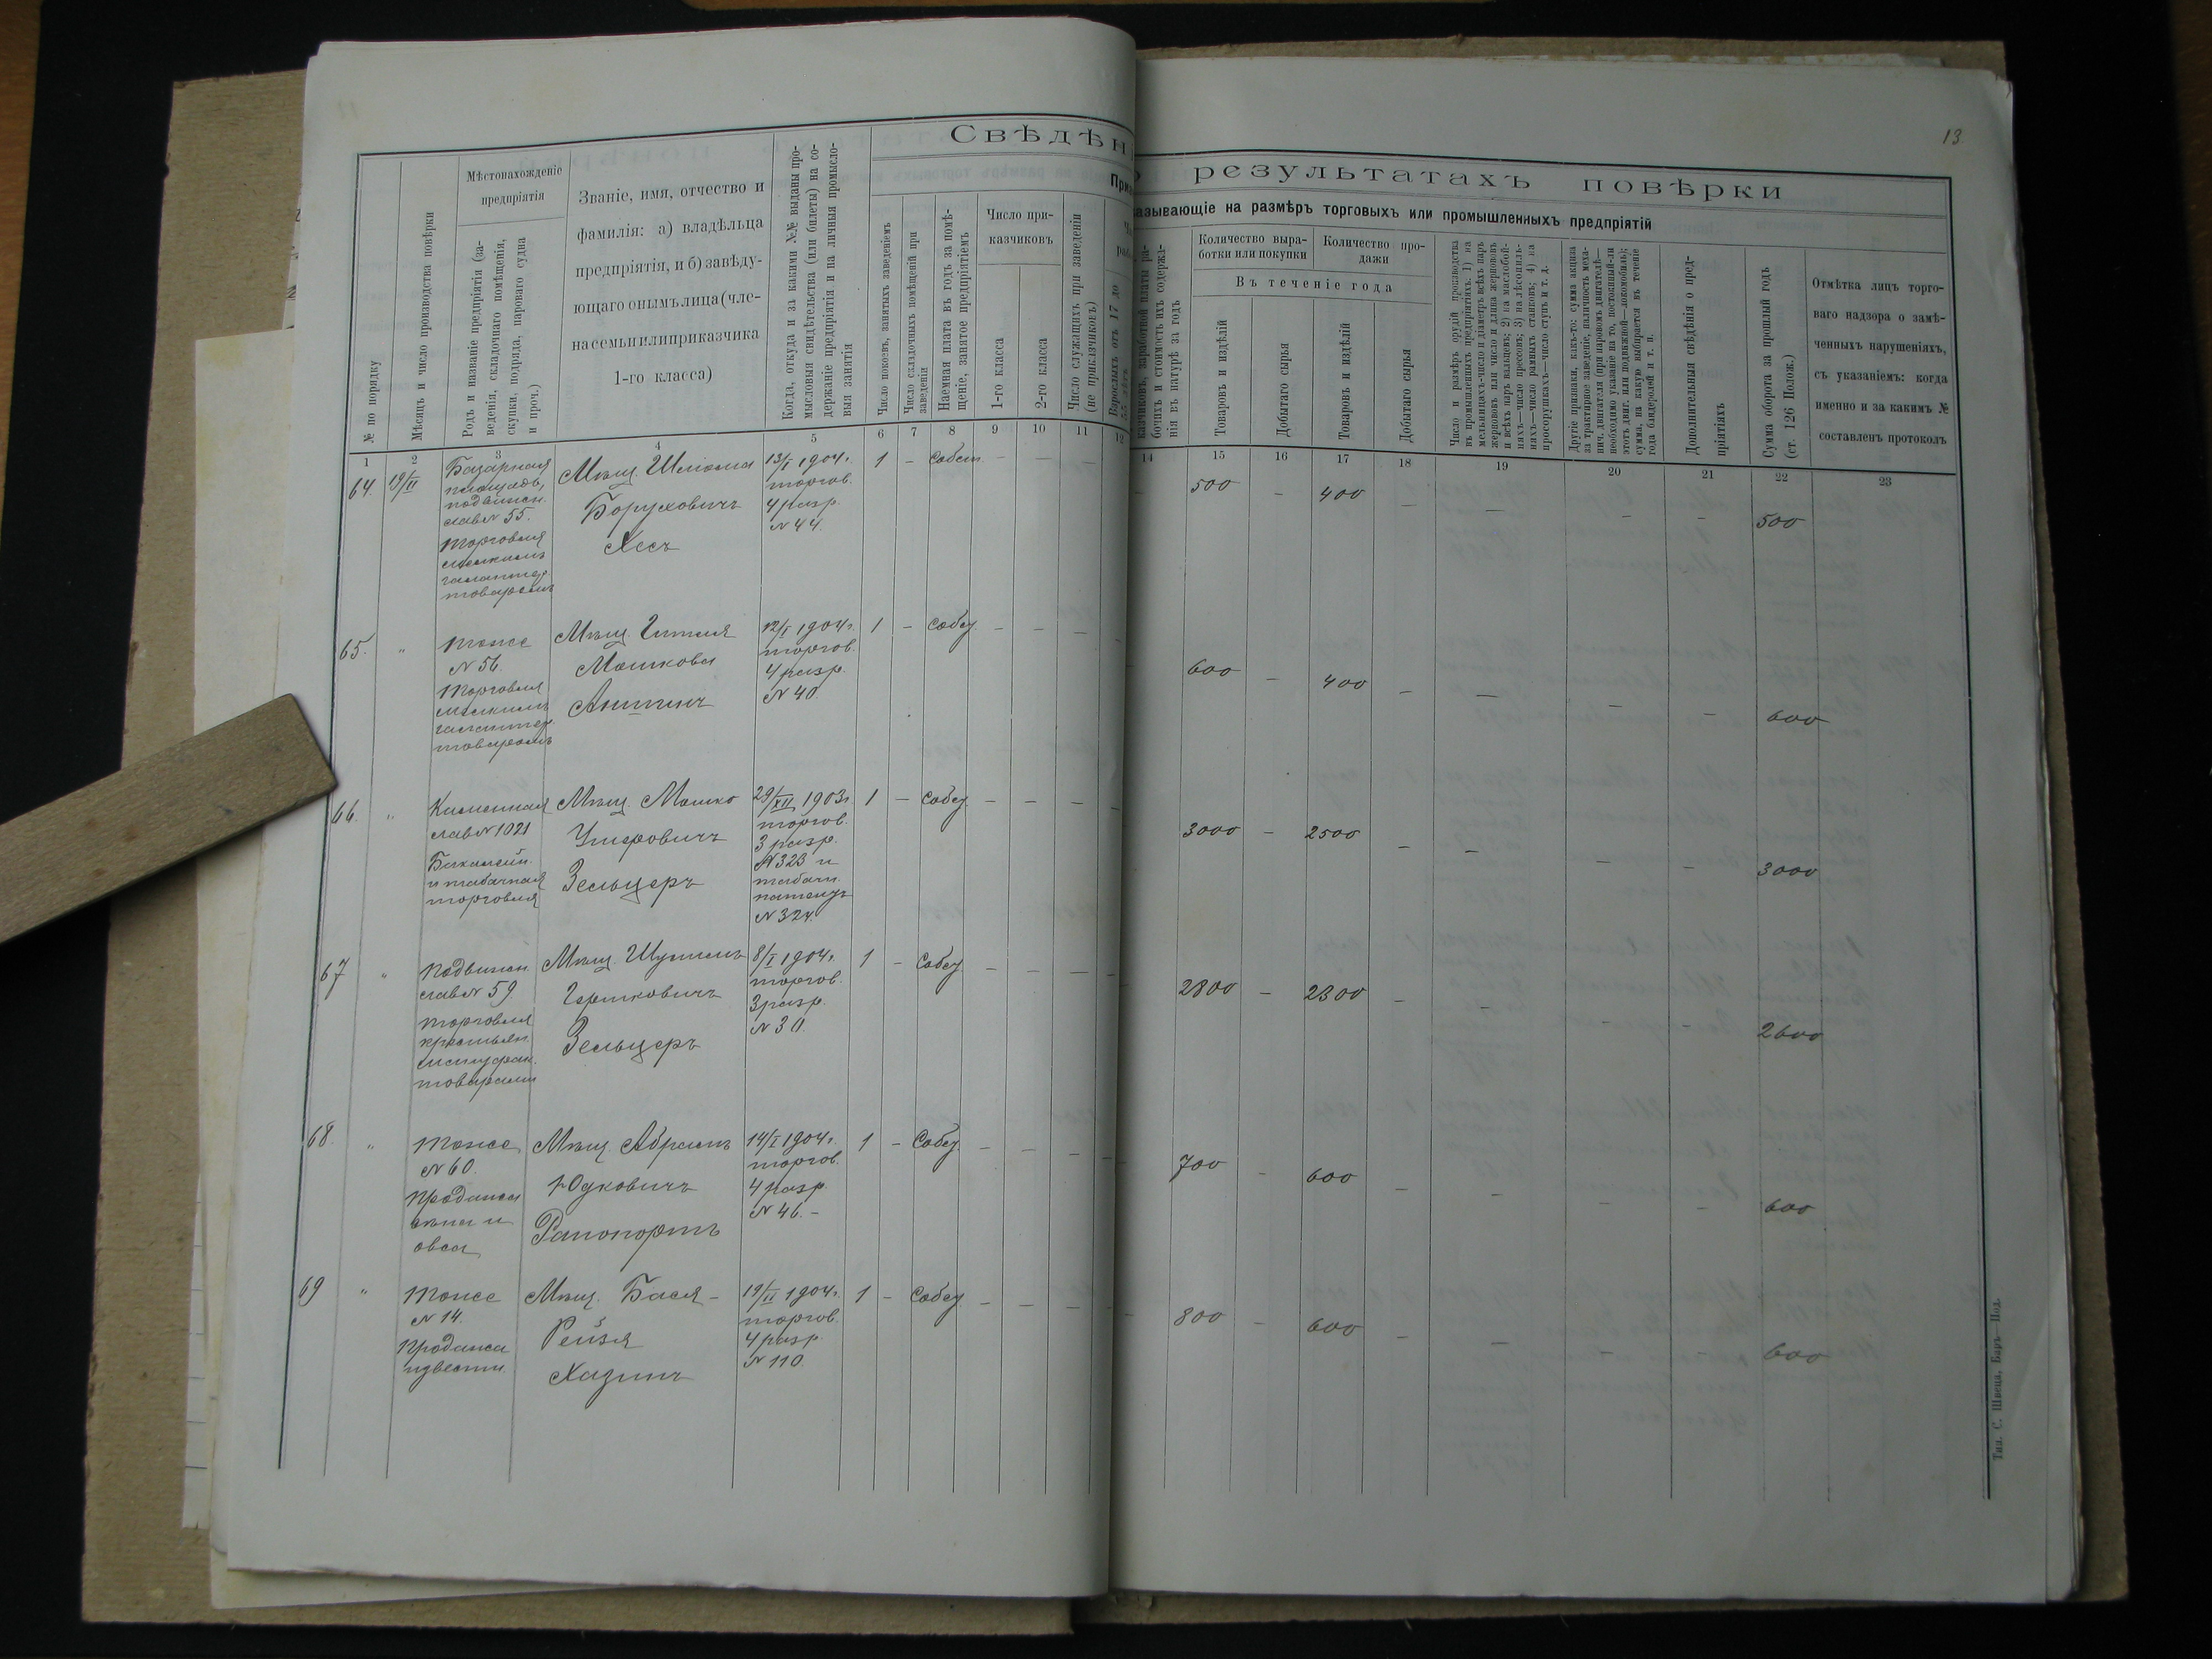 13
Свѣдѣн
о результатахъ повѣрки
Приз
казывающіе на размѣръ торговыхъ или промышленныхъ предпріятій
№ по порядку
Мѣсяцъ и число производства повѣрки
Мѣстонахожденіе
предпріятія
Родъ и названіе предпріятія (за-
веденія, складочнаго помѣщенія,
скупки, подряда, парового судна
и проч.)
Званіе, имя, отчество и
фамилія: а) владѣльца
предпріятія, и б) завѣду-
ющаго онымъ лица (чле-
на семьи или приказчика
1-го класса)
Когда, откуда и за какими №№ выданы про-
мысловыя свидѣтельства (или билеты) на со-
держаніе предпріятія и на личныя промысло-
выя занятія
Число покоевъ, занятыхъ заведеніемъ
Число складочныхъ помѣщеній при
заведеніи
Наемная плата въ годъ за помѣ-
щеніе, занятое предпріятіемъ
Число при-
казчиковъ
1-го класса
2-го класса
Число служащихъ при заведеніи
(не приказчиковъ)
Взрослыхъ отъ 17 до
казчиковъ, заработной платы ра-
бочихъ и стоимость ихъ содержа-
нія въ натурѣ за годъ
Количество выра-
ботки или покупки
Количество про-
дажи
Въ теченіе года
Товаровъ и издѣлій
Добытаго сырья
Товаровъ и издѣлій
Добытаго сырья
Число и размѣръ орудій производства
въ промышленныхъ предпріятіяхъ: 1) на
мельницахъ—число и діаметръ всѣхъ паръ
жернововъ или число и длина жернововъ
и всѣхъ паръ вальцевъ; 2) на маслобой-
няхъ—число прессовъ; 3) на лѣсопиль-
няхъ—число рамныхъ станковъ; 4) на
просорушкахъ—число ступъ и т. д.
Другіе признаки, какъ-то: сумма акциза
за трактирное заведеніе, наличность меха-
нич. двигателя (при паровомъ двигателѣ—
необходимо указаніе на то, постоянный-ли
этотъ двиг. или подвижной—локомобиль);
сумма, на какую выбирается въ теченіе
года бандеролей и т. п.
Дополнительныя свѣдѣнія о пред-
пріятіяхъ
Сумма оборота за прошлый годъ
(ст. 126 Полож.)
Отмѣтка лицъ торго-
ваго надзора о замѣ-
ченныхъ нарушеніяхъ,
съ указаніемъ: когда
именно и за какимъ №
составленъ протоколъ
1 2 3 4 5 6 7 8 9 10 11 12
14 15 16 17 18 19 20 21 22 23
64. 19/II
Базарная
площадь,
подвижн.
лав № 55.
Торговля
мелкимъ
галантер.
товаромъ
Мѣщ. Шлёма
Боруховичъ
Хесъ
13/I 1904 г.
торгов.
4 разр.
№ 44.
1 – Собст. – – –
500 – 400 – – – – 500
65. "
Тоже
№ 56.
Торговля
мелкимъ
галантер.
товаромъ
Мѣщ. Гитля
Мошкова
12/I 1904 г.
торгов.
4 разр.
№ 40.
1 – Собст. – – – –
600 – 400 – – – – 600
66. "
Каменная
лав № 1021
Бакалейн.
и табачная
торговля
Мѣщ. Мошко
Зельцеръ
29/XII 1903 г.
торгов.
3 разр.
№ 323 и
табачн.
патентъ
№ 324.
1 – Собст. – – – –
3000 – 2500 – – – – 3000
67 "
Подвижн.
лав № 59
Торговля
крестьян.
мануфак.
товарами
Мѣщ. Шулимъ
Гершковичъ
Зельцеръ
8/I 1904 г.
торгов.
3 разр.
№ 30.
1 – Собст. – – – –
2800 – 2300 – – – – 2600
68. "
Тоже
№ 60.
Продажа
сѣна и
овса
Мѣщ. Абрамъ
Юдковичъ
Рапопортъ
14/I 1904 г.
торгов.
4 разр.
№ 46. –
1 – Собст. – – – –
700 – 600 – – – – 600
69 "
Тоже
№ 14.
Продажа
извести.
Мѣщ. Бася-
Рейзя
Хазинъ
19/II 1904 г.
торгов.
4 разр.
№ 110.
1 – Собст. – – – –
800 – 600 – – – – 600
Тип. С. Швеца, Баръ—Под.